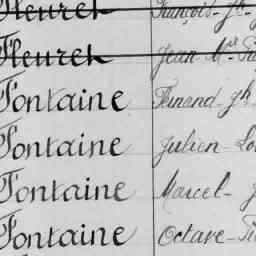 Fleuret François-Jh-
Fleuret Jean-Mie
Fontaine Fernand-Jh
Fontaine Julien-Lo
Fontaine Marcel-J
Fontaine Octave-